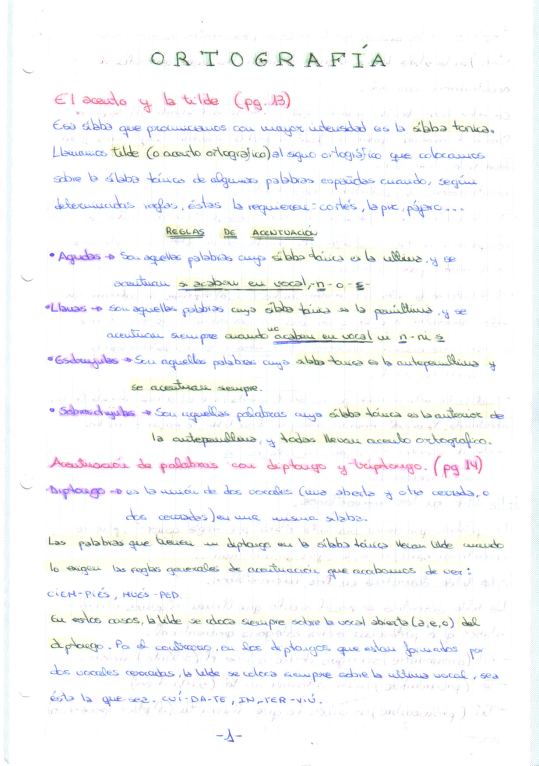 ORTOGRAFÍA
El acento y la tilde (pg. 13)
Esa sílaba que pronunciamos con mayor intensidad es la sílaba tonica.
Llamamos tilde (o acento ortográfico) al signo ortográfico que colocamos
sobre la sílaba tónica de algunas palabras españolas cuando, según
determinadas reglas, éstas la requieren: cortés, lápiz, pájaro...
REGLAS DE ACENTUACIÓN
• Agudas → Son aquellas palabras cuya sílaba tónica es la última, y se
acentúan si acaban en vocal, -n- o -s-
• Llanas → Son aquellas palabras cuya sílaba tónica es la penúltima, y se
acentúan siempre cuando no acaban en vocal ni n- ni s
• Esdrújulas → Son aquellas palabras cuya sílaba tonica es la antepenúltima y
se acentúan siempre.
• Sobresdrújulas → Son aquellas palabras cuya sílaba tónica es la anterior de
la antepenúltima, y todas llevan acento ortográfico.
Acentuación de palabras con diptongo y triptongo. (pg 14)
Diptongo → es la unión de dos vocales (una abierta y otra cerrada, o
dos cerradas) en una misma sílaba.
Las palabras que tienen un diptongo en la sílaba tónica llevan tilde cuando
lo exigen las reglas generales de acentuación que acabamos de ver:
CIEM-PIÉS, HUÉS-PED.
En estos casos, la tilde se coloca siempre sobre la vocal abierta (a,e,o) del
diptongo. Por el contrario, en los diptongos que están formados por
dos vocales cerradas, la tilde se coloca siempre sobre la última vocal, sea
ésta la que sea. CUÍ-DA-TE, IN-TER-VIÚ.
-1-